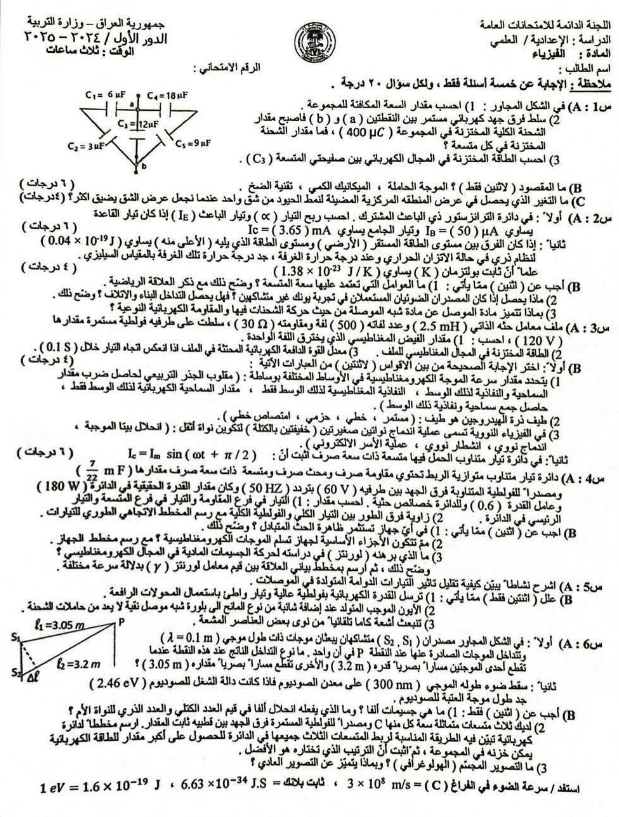 جمهورية العراق – وزارة التربية
الدور الأول / ٢٠٢٤ – ٢٠٢٥
الوقت : ثلاث ساعات
اللجنة الدائمة للامتحانات العامة
الدراسة : الإعدادية / العلمي
المادة : الفيزياء
اسم الطالب :
الرقم الامتحاني :
ملاحظة : الإجابة عن خمسة أسئلة فقط ، ولكل سؤال ٢٠ درجة .
C₁= 6 μF C₄=18μF
a
C₃=12μF
C₂= 3μF C₅=9μF
b
س1 : A) في الشكل المجاور : 1) احسب مقدار السعة المكافئة للمجموعة .
2) سلط فرق جهد كهربائي مستمر بين النقطتين ( a ) و ( b ) فاصبح مقدار
الشحنة الكلية المختزنة في المجموعة ( 400 μC ) ، فما مقدار الشحنة
المختزنة في كل متسعة ؟
3) احسب الطاقة المختزنة في المجال الكهربائي بين صفيحتي المتسعة ( C₃ ) .
B) ما المقصود ( لاثنين فقط ) ؟ الموجة الحاملة ، الميكانيك الكمي ، تقنية الضخ . ( ٦ درجات )
C) ما التغير الذي يحصل في عرض المنطقه المركزية المضيئة لنمط الحيود من شق واحد عندما نجعل عرض الشق يضيق اكثر؟ (٤درجات)
س2 : A) أولاً : في دائرة الترانزستور ذي الباعث المشترك . احسب ربح التيار ( ∝ ) وتيار الباعث ( Iᴇ ) إذا كان تيار القاعدة
يساوي Iʙ = ( 50 ) μA وتيار الجامع يساوي Ic = ( 3.65 ) mA ( ٦ درجات )
ثانياً : إذا كان الفرق بين مستوى الطاقة المستقر ( الأرضي ) ومستوى الطاقة الذي يليه ( الأعلى منه ) يساوي ( 0.04 × 10⁻¹⁹ J )
لنظام ذري في حالة الاتزان الحراري وعند درجة حرارة الغرفة ، جد درجة حرارة تلك الغرفة بالمقياس السيليزي .
علماً أن ثابت بولتزمان ( K ) يساوي ( 1.38 × 10⁻²³ J / K ) ( ٤ درجات )
B) أجب عن ( اثنين ) ممّا يأتي : 1) ما العوامل التي تعتمد عليها سعة المتسعة ؟ وضّح ذلك مع ذكر العلاقة الرياضية .
2) ماذا يحصل إذا كان المصدران الضوئيان المستعملان في تجربة يونك غير متشاكهين ؟ فهل يحصل التداخل البناء والاتلاف ؟ وضح ذلك .
3) بماذا تتميز مادة الموصل عن مادة شبه الموصلة من حيث حركة الشحنات فيها والمقاومة الكهربائية النوعية ؟
س3 : A) ملف معامل حثه الذاتي ( 2.5 mH ) وعدد لفاته ( 500 ) لفة ومقاومته ( 30 Ω ) ، سلطت على طرفيه فولطية مستمرة مقدارها
( 120 V ) ، احسب : 1) مقدار الفيض المغناطيسي الذي يخترق اللفة الواحدة .
2) الطاقة المختزنة في المجال المغناطيسي للملف . 3) معدل القوة الدافعة الكهربائية المحتثة في الملف اذا انعكس اتجاه التيار خلال ( 0.1 S ) .
B) أولاً : اختر الإجابة الصحيحة من بين الأقواس ( لاثنتين ) من العبارات الآتية : ( ٤ درجات )
1) يتحدد مقدار سرعة الموجة الكهرومغناطيسية في الأوساط المختلفة بوساطة : ( مقلوب الجذر التربيعي لحاصل ضرب مقدار
السماحية والنفاذية لذلك الوسط ، النفاذية المغناطيسية لذلك الوسط فقط ، مقدار السماحية الكهربائية لذلك الوسط فقط ،
حاصل جمع سماحية ونفاذية ذلك الوسط ) .
2) طيف ذرة الهيدروجين هو طيف : ( مستمر ، خطي ، حزمي ، امتصاص خطي ) .
3) في الفيزياء النووية تسمى عملية اندماج نواتين صغيرتين ( خفيفتين بالكتلة ) لتكوين نواة أثقل : ( انحلال بيتا الموجبة ،
اندماج نووي ، انشطار نووي ، عملية الأسر الالكتروني ) .
ثانياً : في دائرة تيار متناوب الحمل فيها متسعة ذات سعة صرف أثبت أنّ : Iᴄ = Iₘ sin ( ωt + π / 2 ) ( ٦ درجات )
س4 : A) دائرة تيار متناوب متوازية الربط تحتوي مقاومة صرف ومحث صرف ومتسعة ذات سعة صرف مقدارها ( 7/22 m F )
ومصدراً للفولطية المتناوبة فرق الجهد بين طرفيه ( 60 V ) بتردد ( 50 HZ ) وكان مقدار القدرة الحقيقية في الدائرة ( 180 W )
وعامل القدرة ( 0.6 ) وللدائرة خصائص حثية . احسب مقدار : 1) التيار في فرع المقاومة والتيار في فرع المتسعة والتيار
الرئيسي في الدائرة . 2) زاوية فرق الطور بين التيار الكلي والفولطية الكلية مع رسم المخطط الاتجاهي الطوري للتيارات .
B) اجب عن ( اثنين ) ممّا يأتي : 1) في أيّ جهاز تستثمر ظاهرة الحث المتبادل ؟ وضّح ذلك .
2) ممّ تتكون الأجزاء الأساسية لجهاز تسلم الموجات الكهرومغناطيسية ؟ مع رسم مخطط الجهاز .
3) ما الذي برهنه ( لورنتز ) في دراسته لحركة الجسيمات المادية في المجال الكهرومغناطيسي ؟
وضّح ذلك ، ثم ارسم بمخطط بياني العلاقة بين قيم معامل لورنتز ( γ ) بدلالة سرعة مختلفة .
س5 : A) اشرح نشاطاً يبيّن كيفية تقليل تأثير التيارات الدوامة المتولدة في الموصلات .
B) علل ( اثنتين فقط ) ممّا يأتي : 1) ترسل القدرة الكهربائية بفولطية عالية وتيار واطئ باستعمال المحولات الرافعة .
2) الأيون الموجب المتولد عند إضافة شائبة من نوع المانح الى بلورة شبه موصل نقية لا يعد من حاملات الشحنة .
3) تنبعث أشعة كاما تلقائياً من نوى بعض العناصر المشعة .
ℓ₁=3.05 m P
S₁
ℓ₂=3.2 m
S₂ Δℓ
س6 : A) أولاً : في الشكل المجاور مصدران ( S₁ , S₂ ) متشاكهان يبعثان موجات ذات طول موجي ( λ = 0.1 m )
وتتداخل الموجات الصادرة عنها عند النقطة P في أن واحد . ما نوع التداخل الناتج عند هذه النقطة عندما
تقطع أحدى الموجتين مساراً بصرياً قدره ( 3.2 m ) والأخرى تقطع مساراً بصرياً مقداره ( 3.05 m ) ؟
ثانياً : سقط ضوء طوله الموجي ( 300 nm ) على معدن الصوديوم فاذا كانت دالة الشغل للصوديوم ( 2.46 eV )
جد طول موجة العتبة للصوديوم .
B) أجب عن ( اثنين ) فقط : 1) ما هي جسيمات ألفا ؟ وما الذي يفعله انحلال ألفا في قيم العدد الكتلي والعدد الذري للنواة الأم ؟
2) لديك ثلاث متسعات متماثلة سعة كل منها C ومصدراً للفولطية المستمرة فرق الجهد بين قطبيه ثابت المقدار. ارسم مخططاً لدائرة
كهربائية تبيّن فيه الطريقة المناسبة لربط المتسعات الثلاث جميعها في الدائرة للحصول على أكبر مقدار للطاقة الكهربائية
يمكن خزنه في المجموعة ، ثم اثبت أنّ الترتيب الذي تختاره هو الأفضل .
3) ما التصوير المجسّم ( الهولوغرافي ) ؟ وبماذا يتميّز عن التصوير العادي ؟
استفد / سرعة الضوء في الفراغ ( C ) = 3 × 10⁸ m/s ، ثابت بلانك = 6.63 ×10⁻³⁴ J.S ، 1 eV = 1.6 × 10⁻¹⁹ J